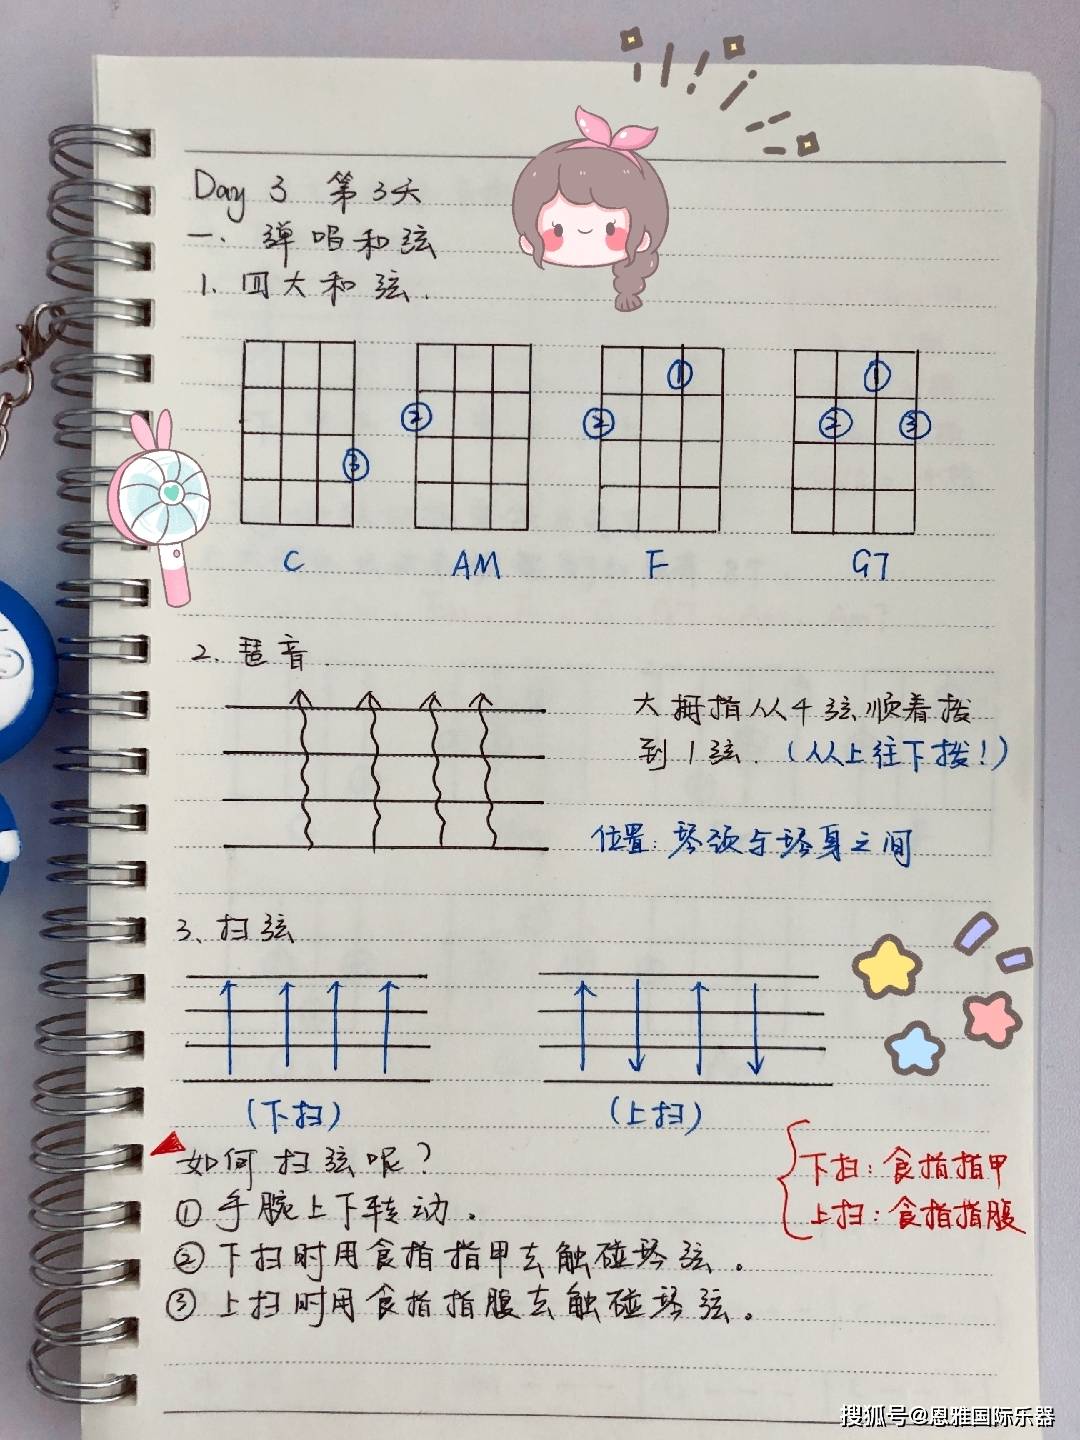 Day 3 第3天
一. 弹唱和弦
1. 四大和弦.
1
1
2
2
2
3
3
C
AM
F
G7
2. 琶音.
大拇指从4弦顺着拨
到1弦. (从上往下拨!)
位置: 琴颈与琴身之间
3、扫弦
(下扫)
(上扫)
如何扫弦呢?
下扫: 食指指甲
上扫: 食指指腹
① 手腕上下转动.
② 下扫时用食指指甲去触碰琴弦.
③ 上扫时用食指指腹去触碰琴弦.
搜狐号@恩雅国际乐器